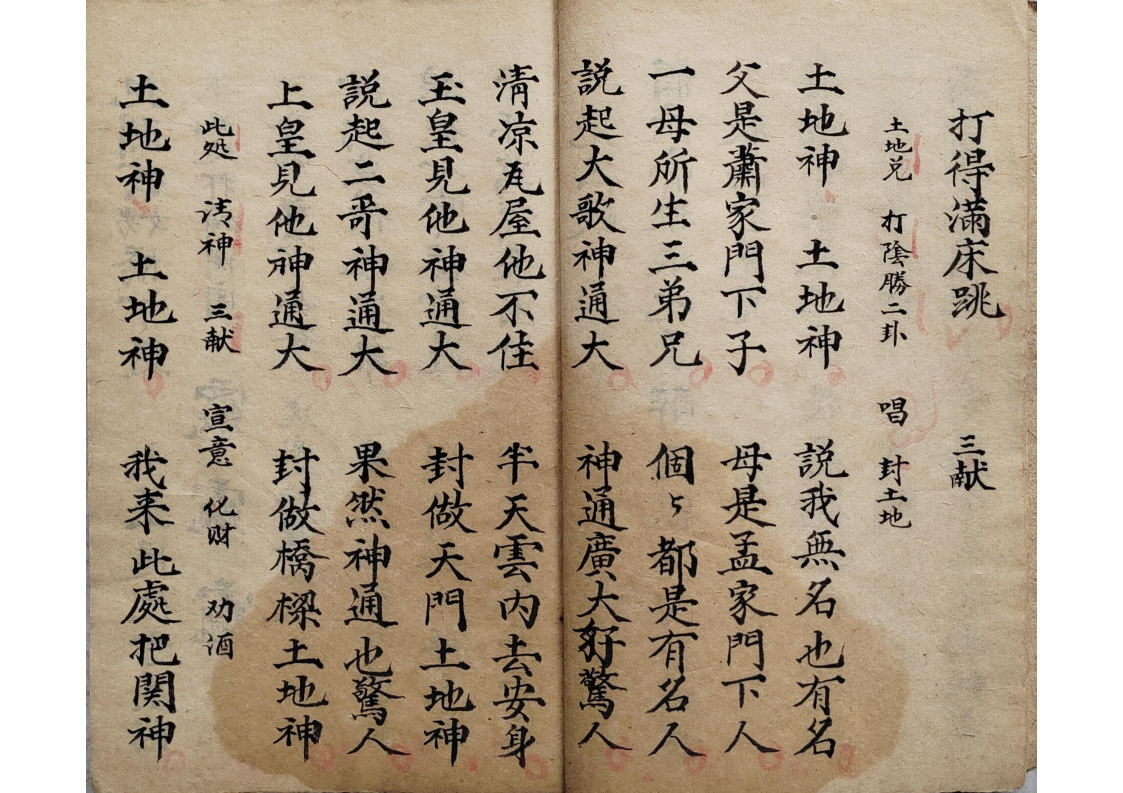 打得滿床跳 三献
土地兑 打陰勝二卦 唱 封土地
土地神 土地神 説我無名也有名
父是蕭家門下子 母是孟家門下人
一母所生三弟兄 個々都是有名人
説起大歌神通大 神通廣大好驚人
清凉瓦屋他不住 半天雲内去安身
玉皇見他神通大 封做天門土地神
説起二哥神通大 果然神通也驚人
上皇見他神通大 封做橋樑土地神
此处 请神 三献 宣意 化财 劝酒
土地神 土地神 我来此處把関神